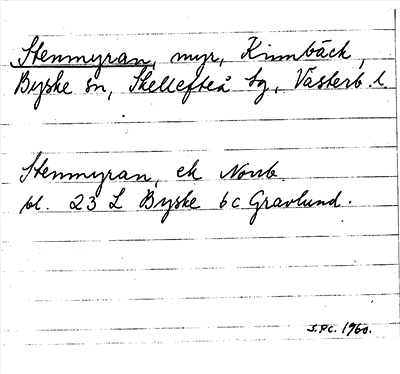 Stenmyran, myr, Kinnbäck,
Byske sn, Skellefteå tg, Västerb. l.
Stenmyran, ek Norrb.
bl. 23 L Byske 6c Gravlund.
J.PC. 1960.